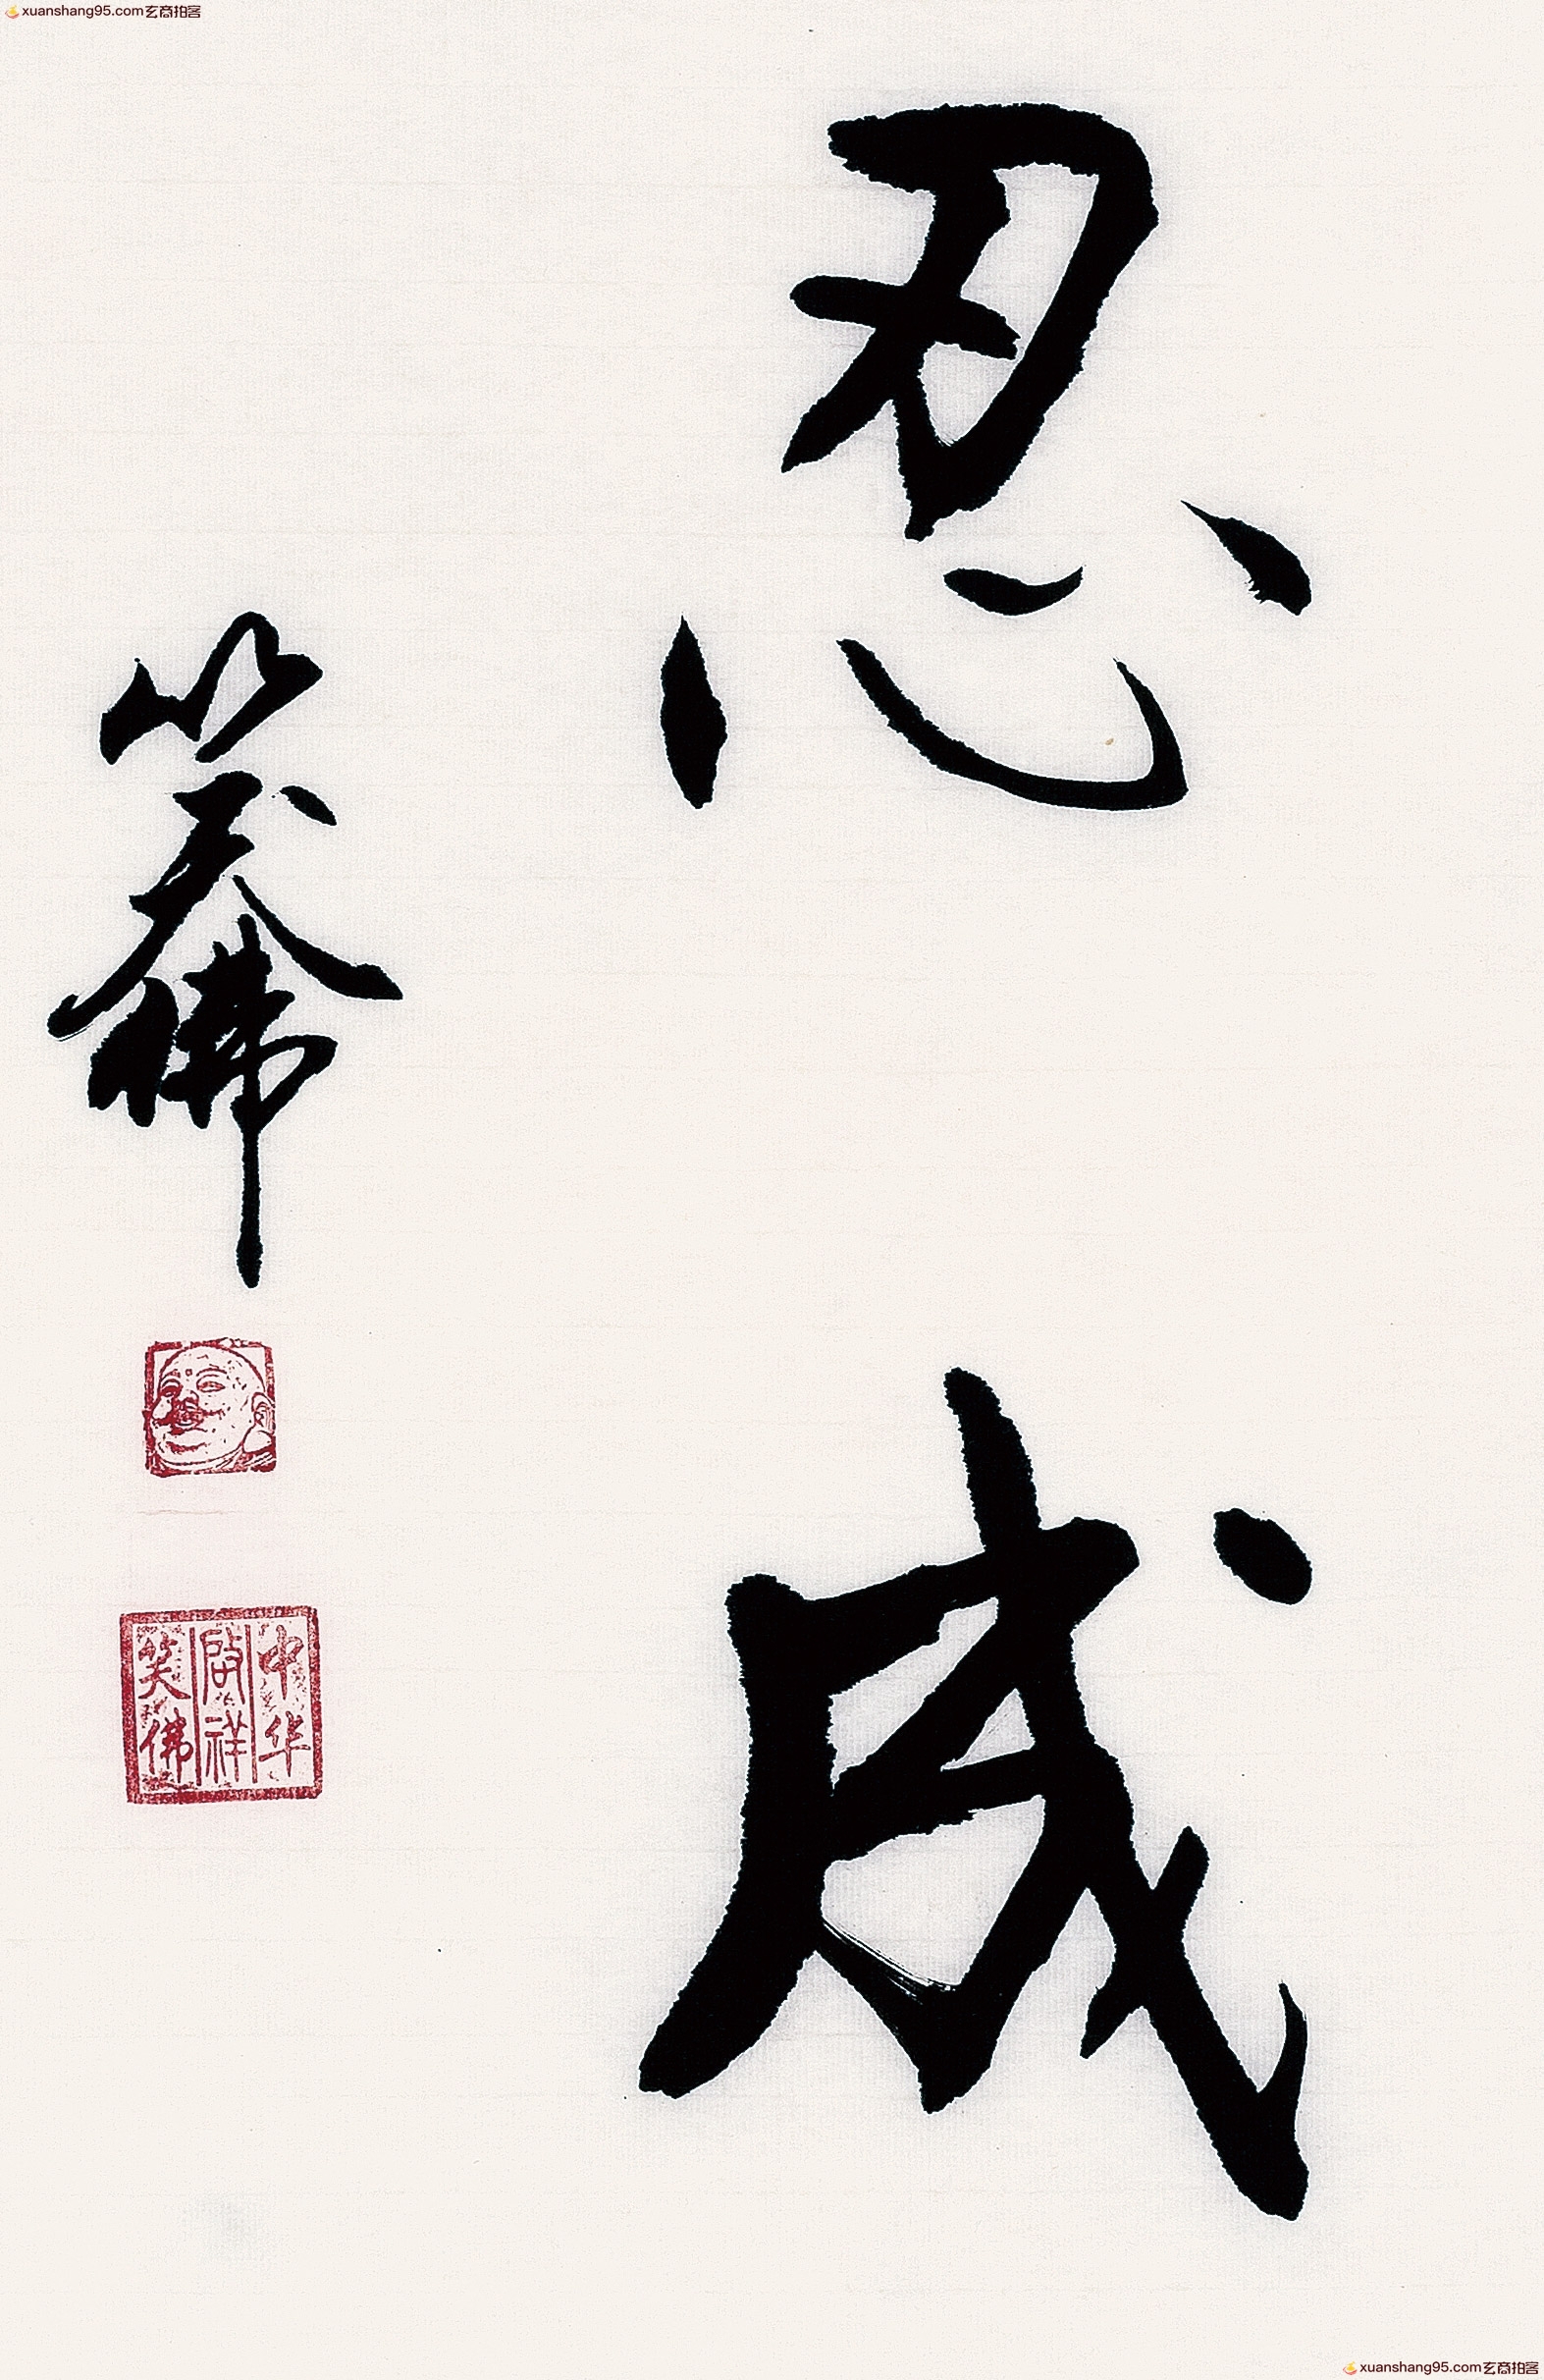 xuanshang95.com玄商拍客
忍
成
笑佛
中华
啟祥
笑佛
xuanshang95.com玄商拍客